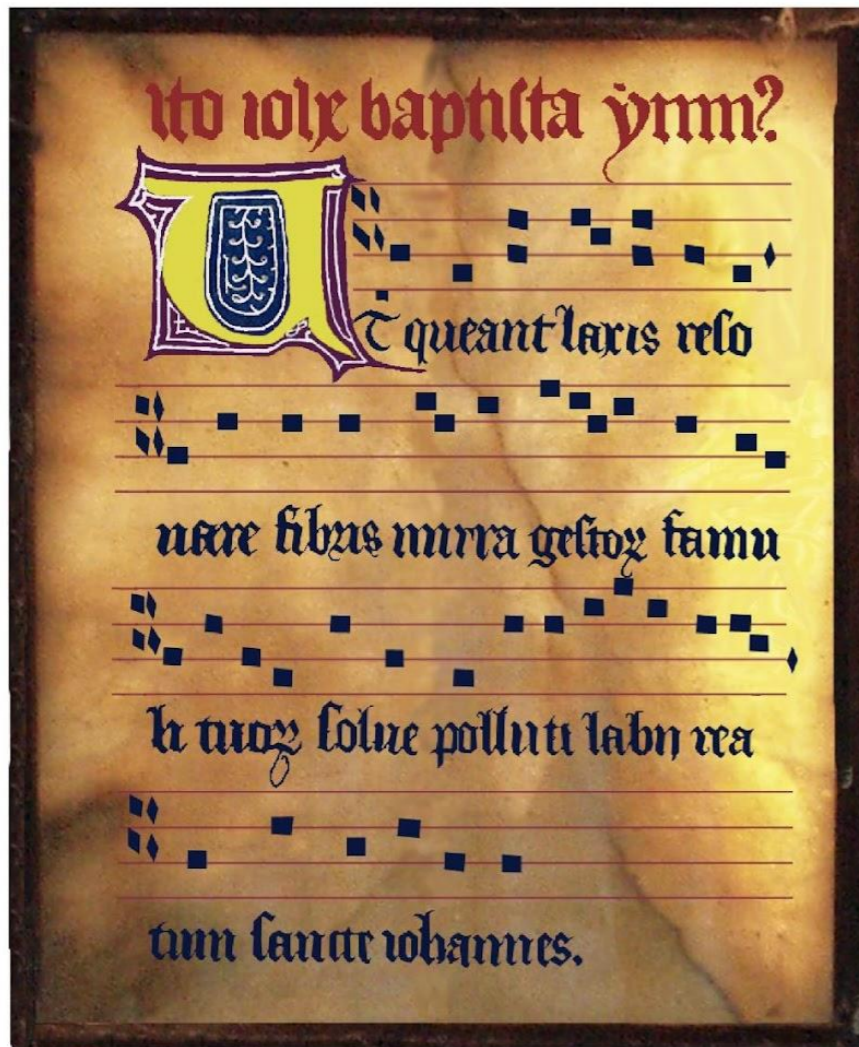 ito iohe baptista ẏmm?
UT queant laxis reso
nare fibris mirra gestoꝝ famu
li tuoꝝ solue polluti labii rea
tum sancte iohannes.